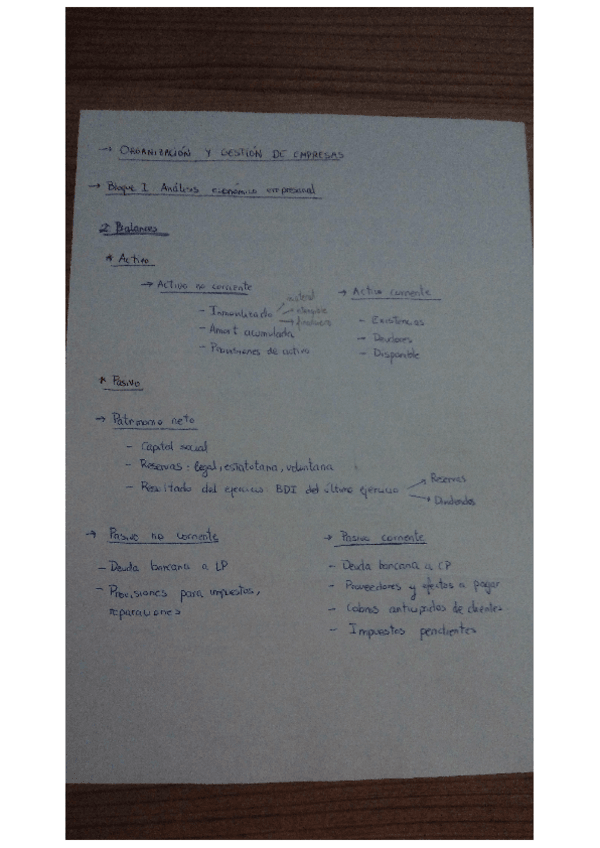 → ORGANIZACIÓN Y GESTIÓN DE EMPRESAS
→ Bloque I: Análisis económico empresarial
2. Balances
* Activo
→ Activo no corriente
- Inmovilizado → material
→ intangible
→ financiero
- Amort acumulada
- Provisiones de activo
→ Activo corriente
- Existencias
- Deudores
- Disponible
* Pasivo
→ Patrimonio neto
- Capital social
- Reservas: legal, estatutaria, voluntaria
- Resultado del ejercicio: BDI del último ejercicio → Reservas
→ Dividendos
→ Pasivo no corriente
- Deuda bancaria a LP
- Provisiones para impuestos,
reparaciones
→ Pasivo corriente
- Deuda bancaria a CP
- Proveedores y efectos a pagar
- Cobros anticipados de clientes
- Impuestos pendientes